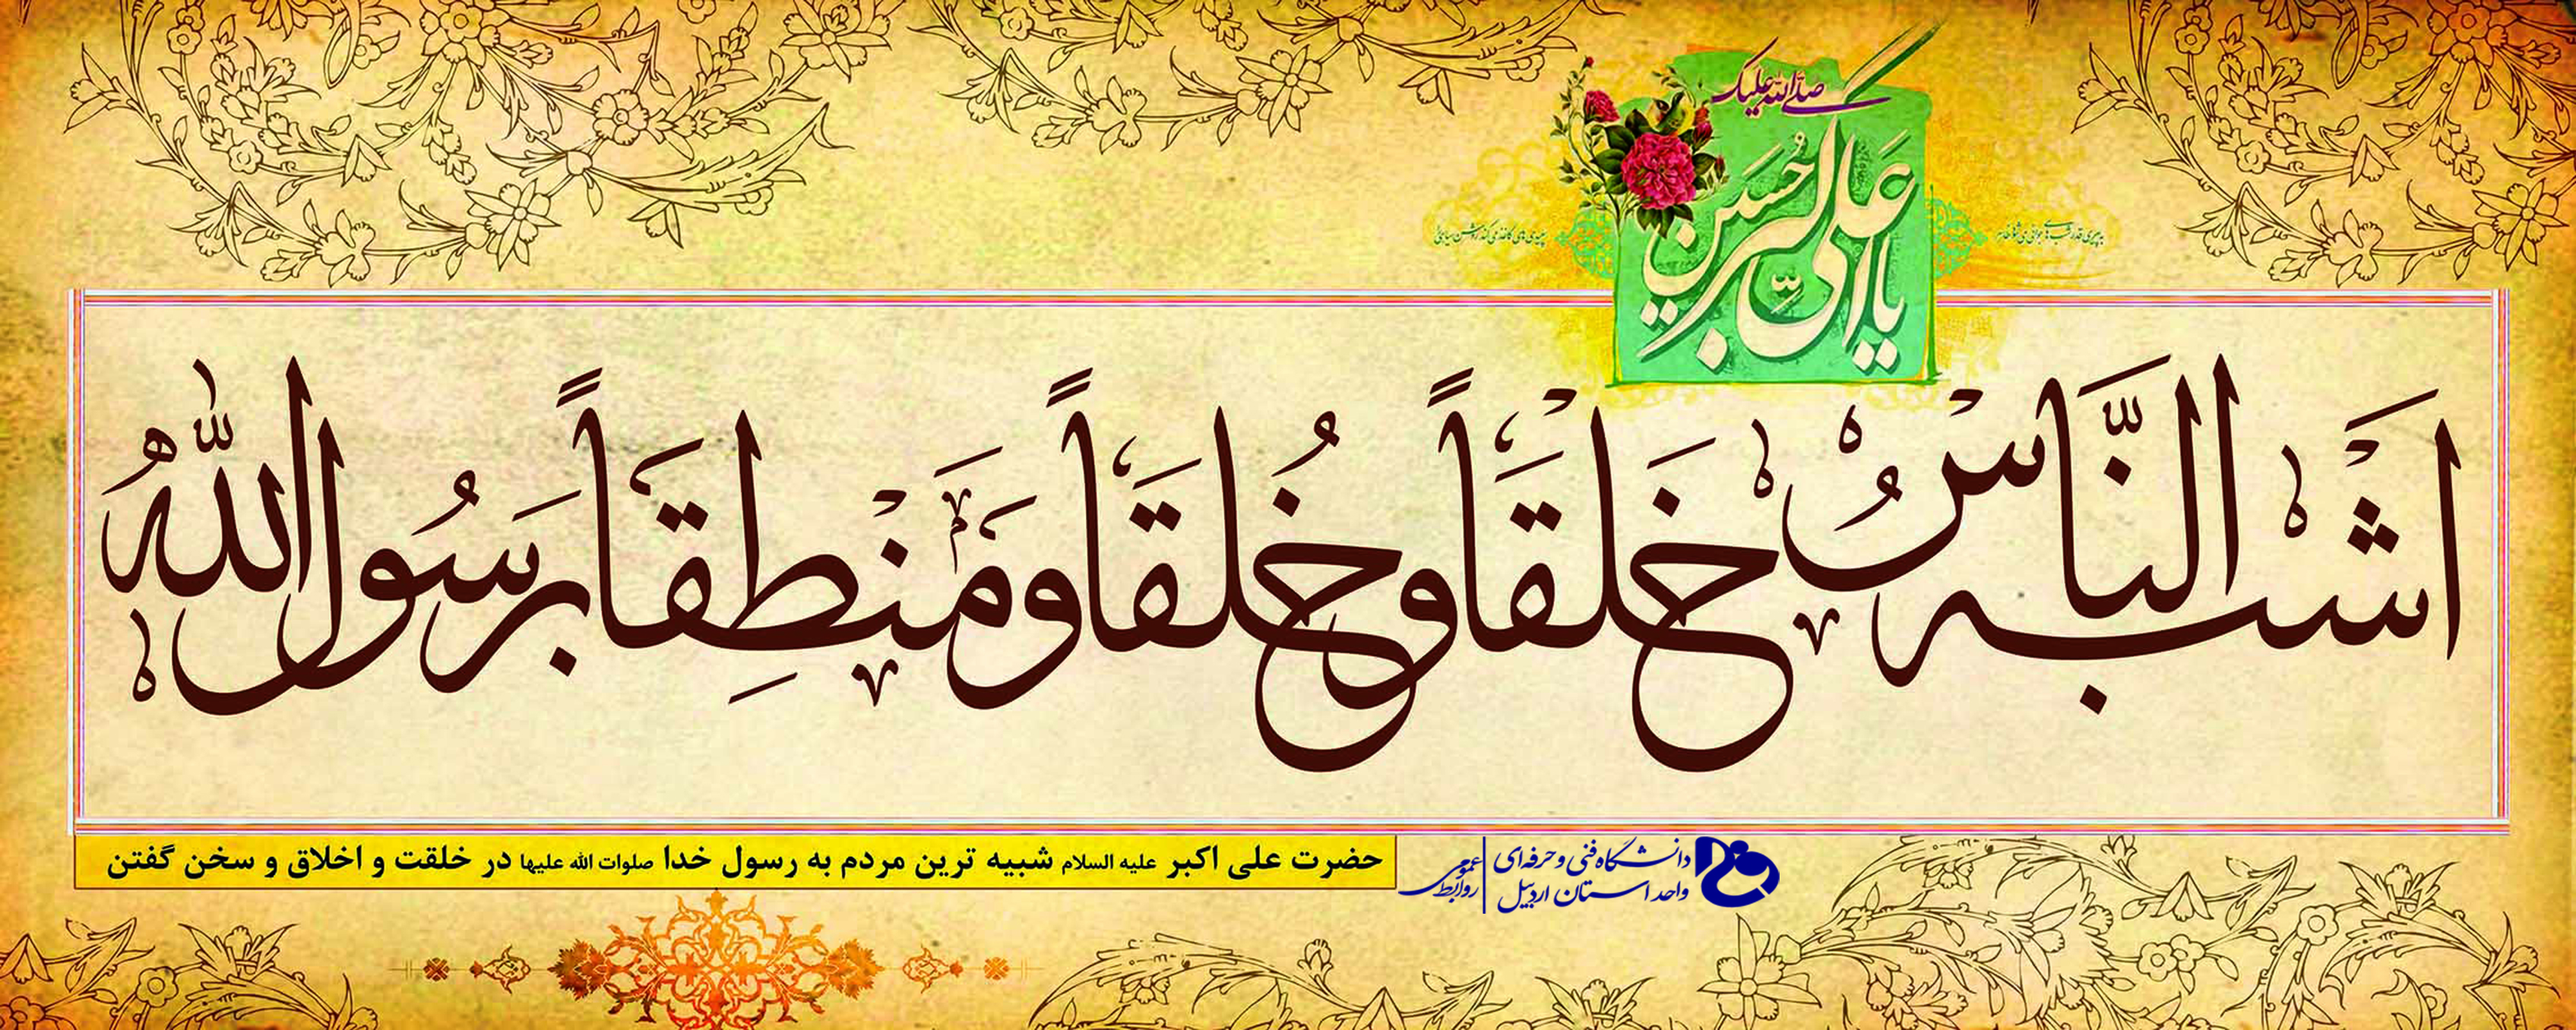 صلی الله علیک
یا علی اکبر حسین
اشبه النَّاسُ خَلقَاً وخُلقَاً ومَنطِقَاً برسُول اللهُ
حضرت علی اکبر علیه السلام شبیه ترین مردم به رسول خدا صلوات الله علیها در خلقت و اخلاق و سخن گفتن
دانشگاه فنی و حرفه‌ای
واحد استان اردبیل
روابط عمومی